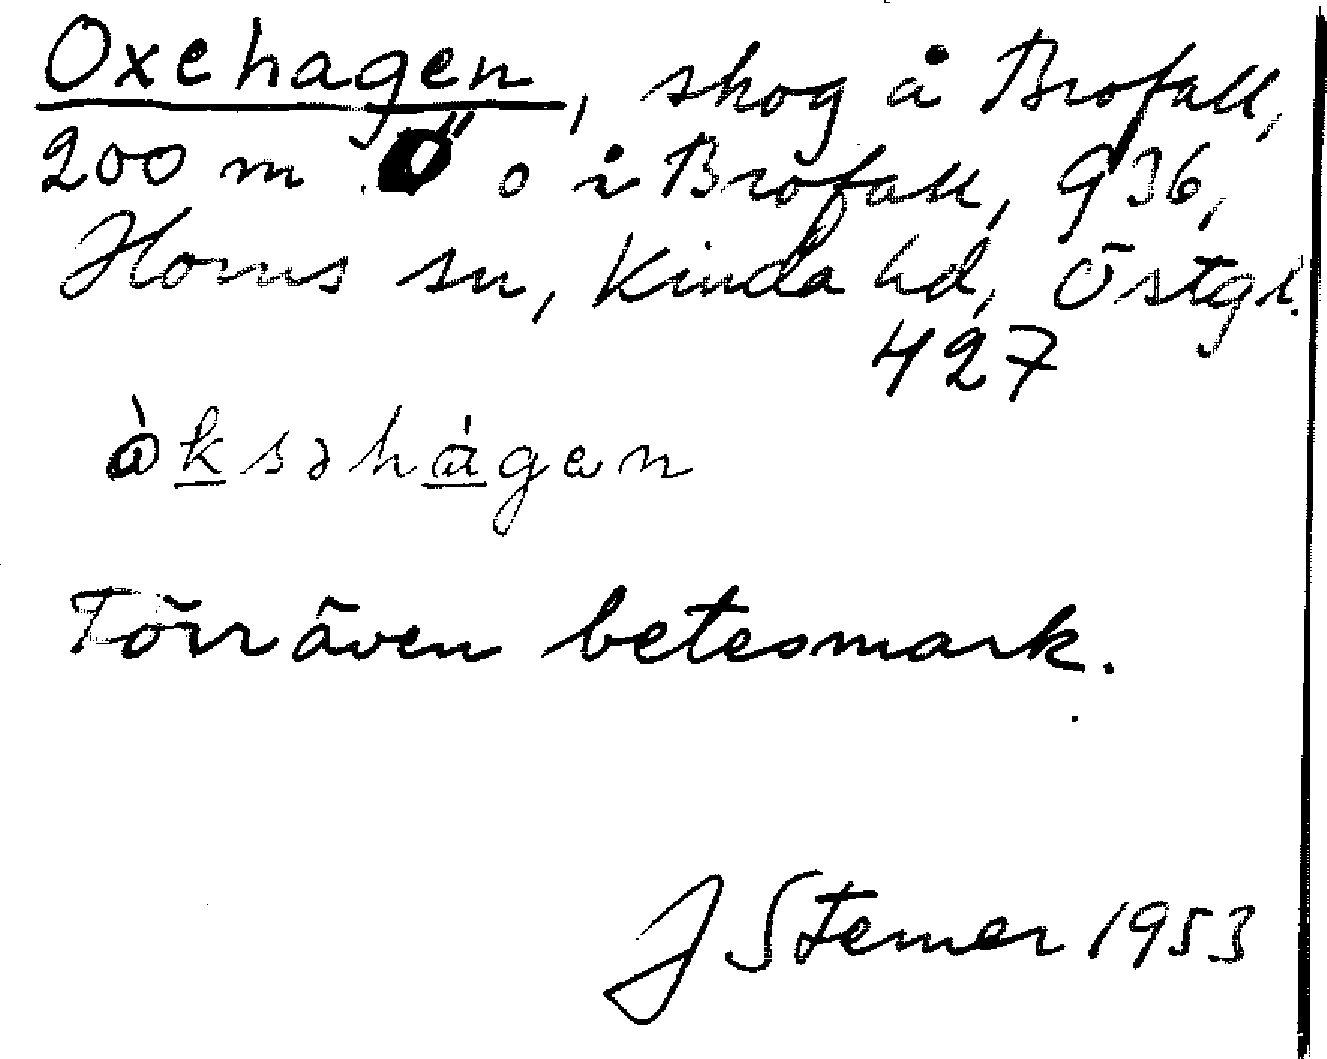 Oxehagen, skog å Brofall,
200 m Ö o i Brofall, 936,
Horns sn, Kinda hd, Östgl.
427
òksəhágen
Förr även betesmark.
J Sterner 1953